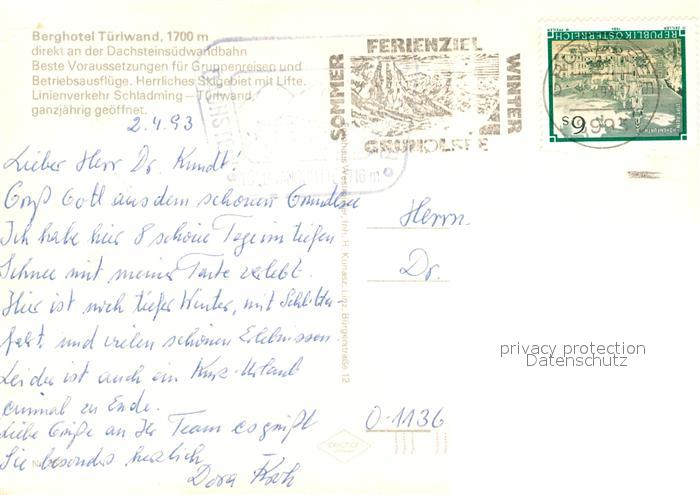 Berghotel Türlwand, 1700 m
direkt an der Dachsteinsüdwandbahn
Beste Voraussetzungen für Gruppenreisen und
Betriebsausflüge. Herrliches Skigebiet mit Lifte.
Linienverkehr Schladming – Türlwand,
ganzjährig geöffnet.
2.4.93
Lieber Herr Dr. Kundt!
Grüß Gott aus dem schönen Grundlsee
Ich habe hier 8 schöne Tage im tiefen
Schnee mit meiner Tante verlebt.
Hier ist noch tiefer Winter, mit Schlitten-
fahrt und vielen schönen Erlebnissen.
Leider ist auch ein Kurz-Urlaub
einmal zu Ende.
Liebe Grüße an Ihr Team es grüßt
Sie besonders herzlich
Dora Koch
SOMMER
FERIENZIEL
WINTER
GRUNDLSEE
REPUBLIK ÖSTERREICH
S 6
Herrn
Dr.
O-1136
privacy protection
Datenschutz